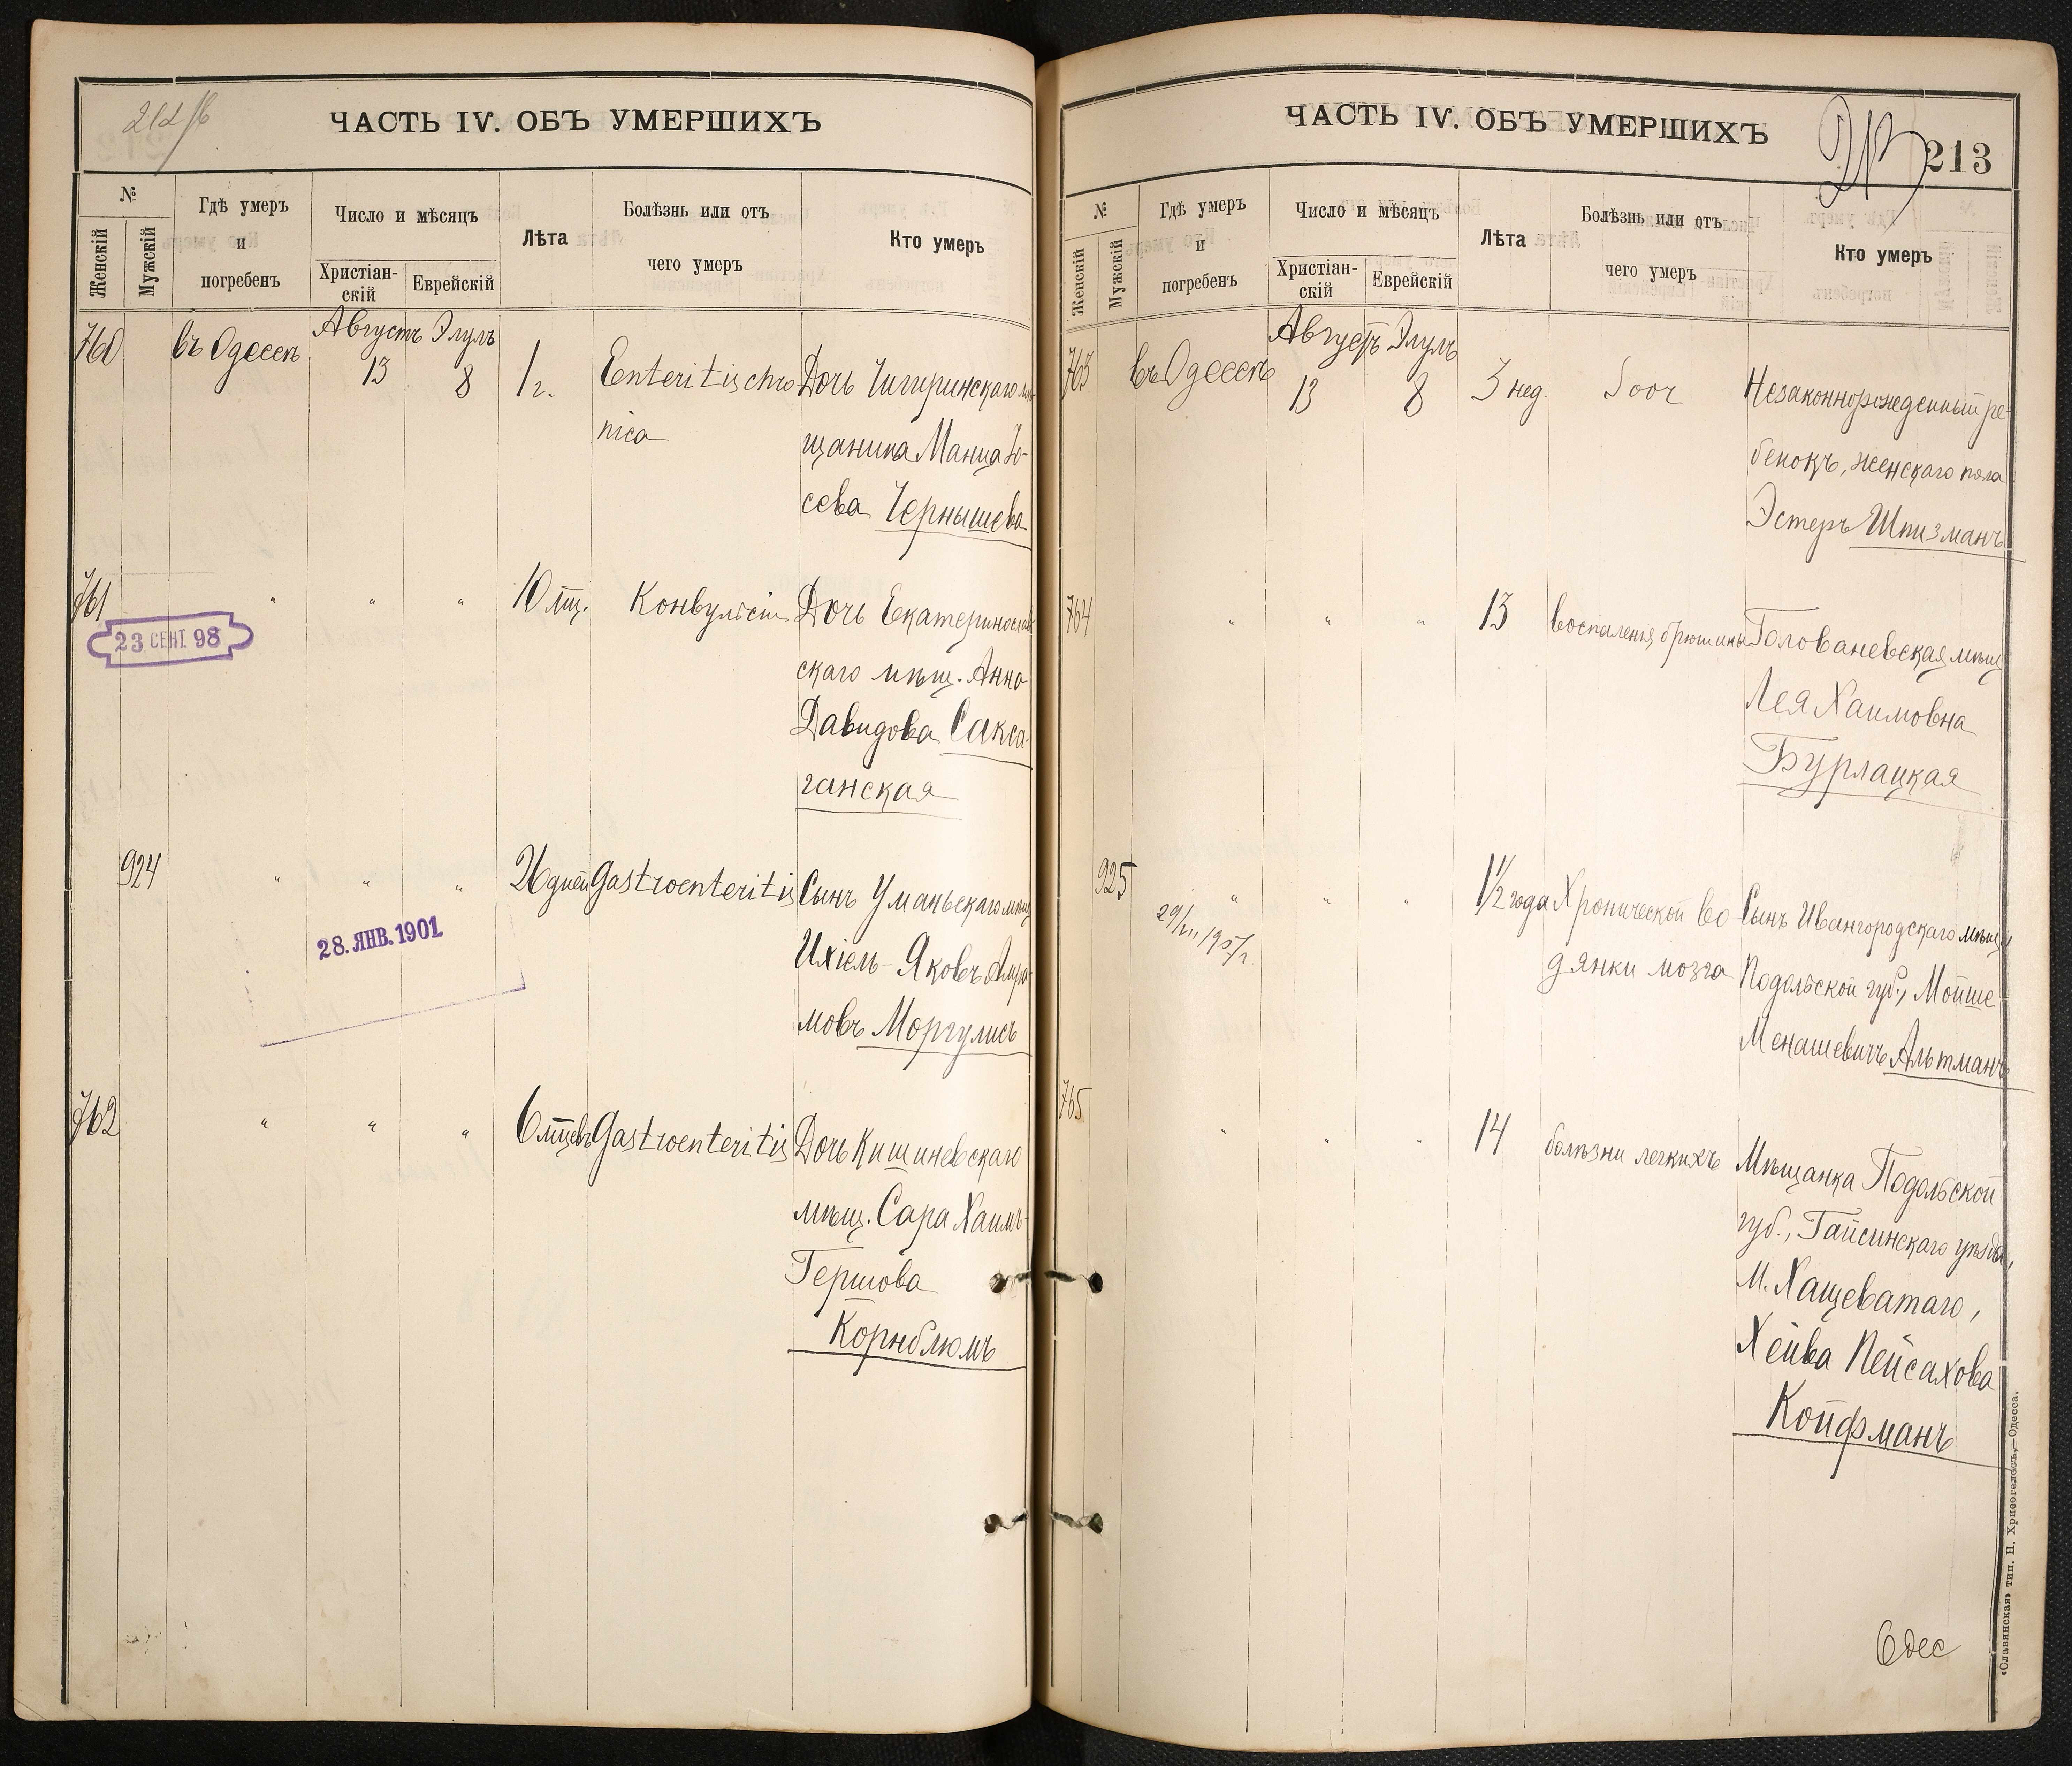 212/б
ЧАСТЬ IV. ОБЪ УМЕРШИХЪ
№
Женскій
Мужскій
Гдѣ умеръ
и
погребенъ
Число и мѣсяцъ
Христіан-
скій
Еврейскій
Лѣта
Болѣзнь или отъ
чего умеръ
Кто умеръ
Августъ Элулъ
760 въ Одессѣ 13 8 1 г. Enteritis chro Дочь Чигиринскаго мѣ-
nica щанина Манца Іо-
сева Чернышева
761 " " " 10 мц. Конвульсіи Дочь Екатеринослав
23 СЕНТ. 98
скаго мѣщ. Анна
Давидова Сакса-
ганская
924 " " " 26 дней Gastroenteritis Сынъ Уманьскаго мѣщ
28. ЯНВ. 1901
Ихіель-Яковъ Абра-
мовъ Моргулисъ
762 " " " 6 мцевъ Gastroenteritis Дочь Кишиневскаго
мѣщ. Сара Хаимъ-
Гершова
Корнблюмъ
ЧАСТЬ IV. ОБЪ УМЕРШИХЪ
213
213
№
Женскій
Мужскій
Гдѣ умеръ
и
погребенъ
Число и мѣсяцъ
Христіан-
скій
Еврейскій
Лѣта
Болѣзнь или отъ
чего умеръ
Кто умеръ
Августъ Элулъ
763 въ Одессѣ 13 8 3 нед. Soor Незаконнорожденный ре-
бенокъ, женскаго пола
Эстеръ Шпизманъ
764 " " " 13 воспаленія брюшины Голованевская мѣщ
Лея Хаимовна
Бурлацкая
925 " " " 1 1/2 года Хронической во- Сынъ Ивангородскаго мѣщ.
29/VII 1905 г.
дянки мозга Подольской губ., Мойше
Менашевичъ Альтманъ
765 " " " 14 болѣзни легкихъ Мѣщанка Подольской
губ., Гайсинскаго уѣзда,
м. Хащеватаго,
Хейва Пейсахова
Койфманъ
Одес
«Славянская» тип. Н. Хрисогелосъ,—Одесса.